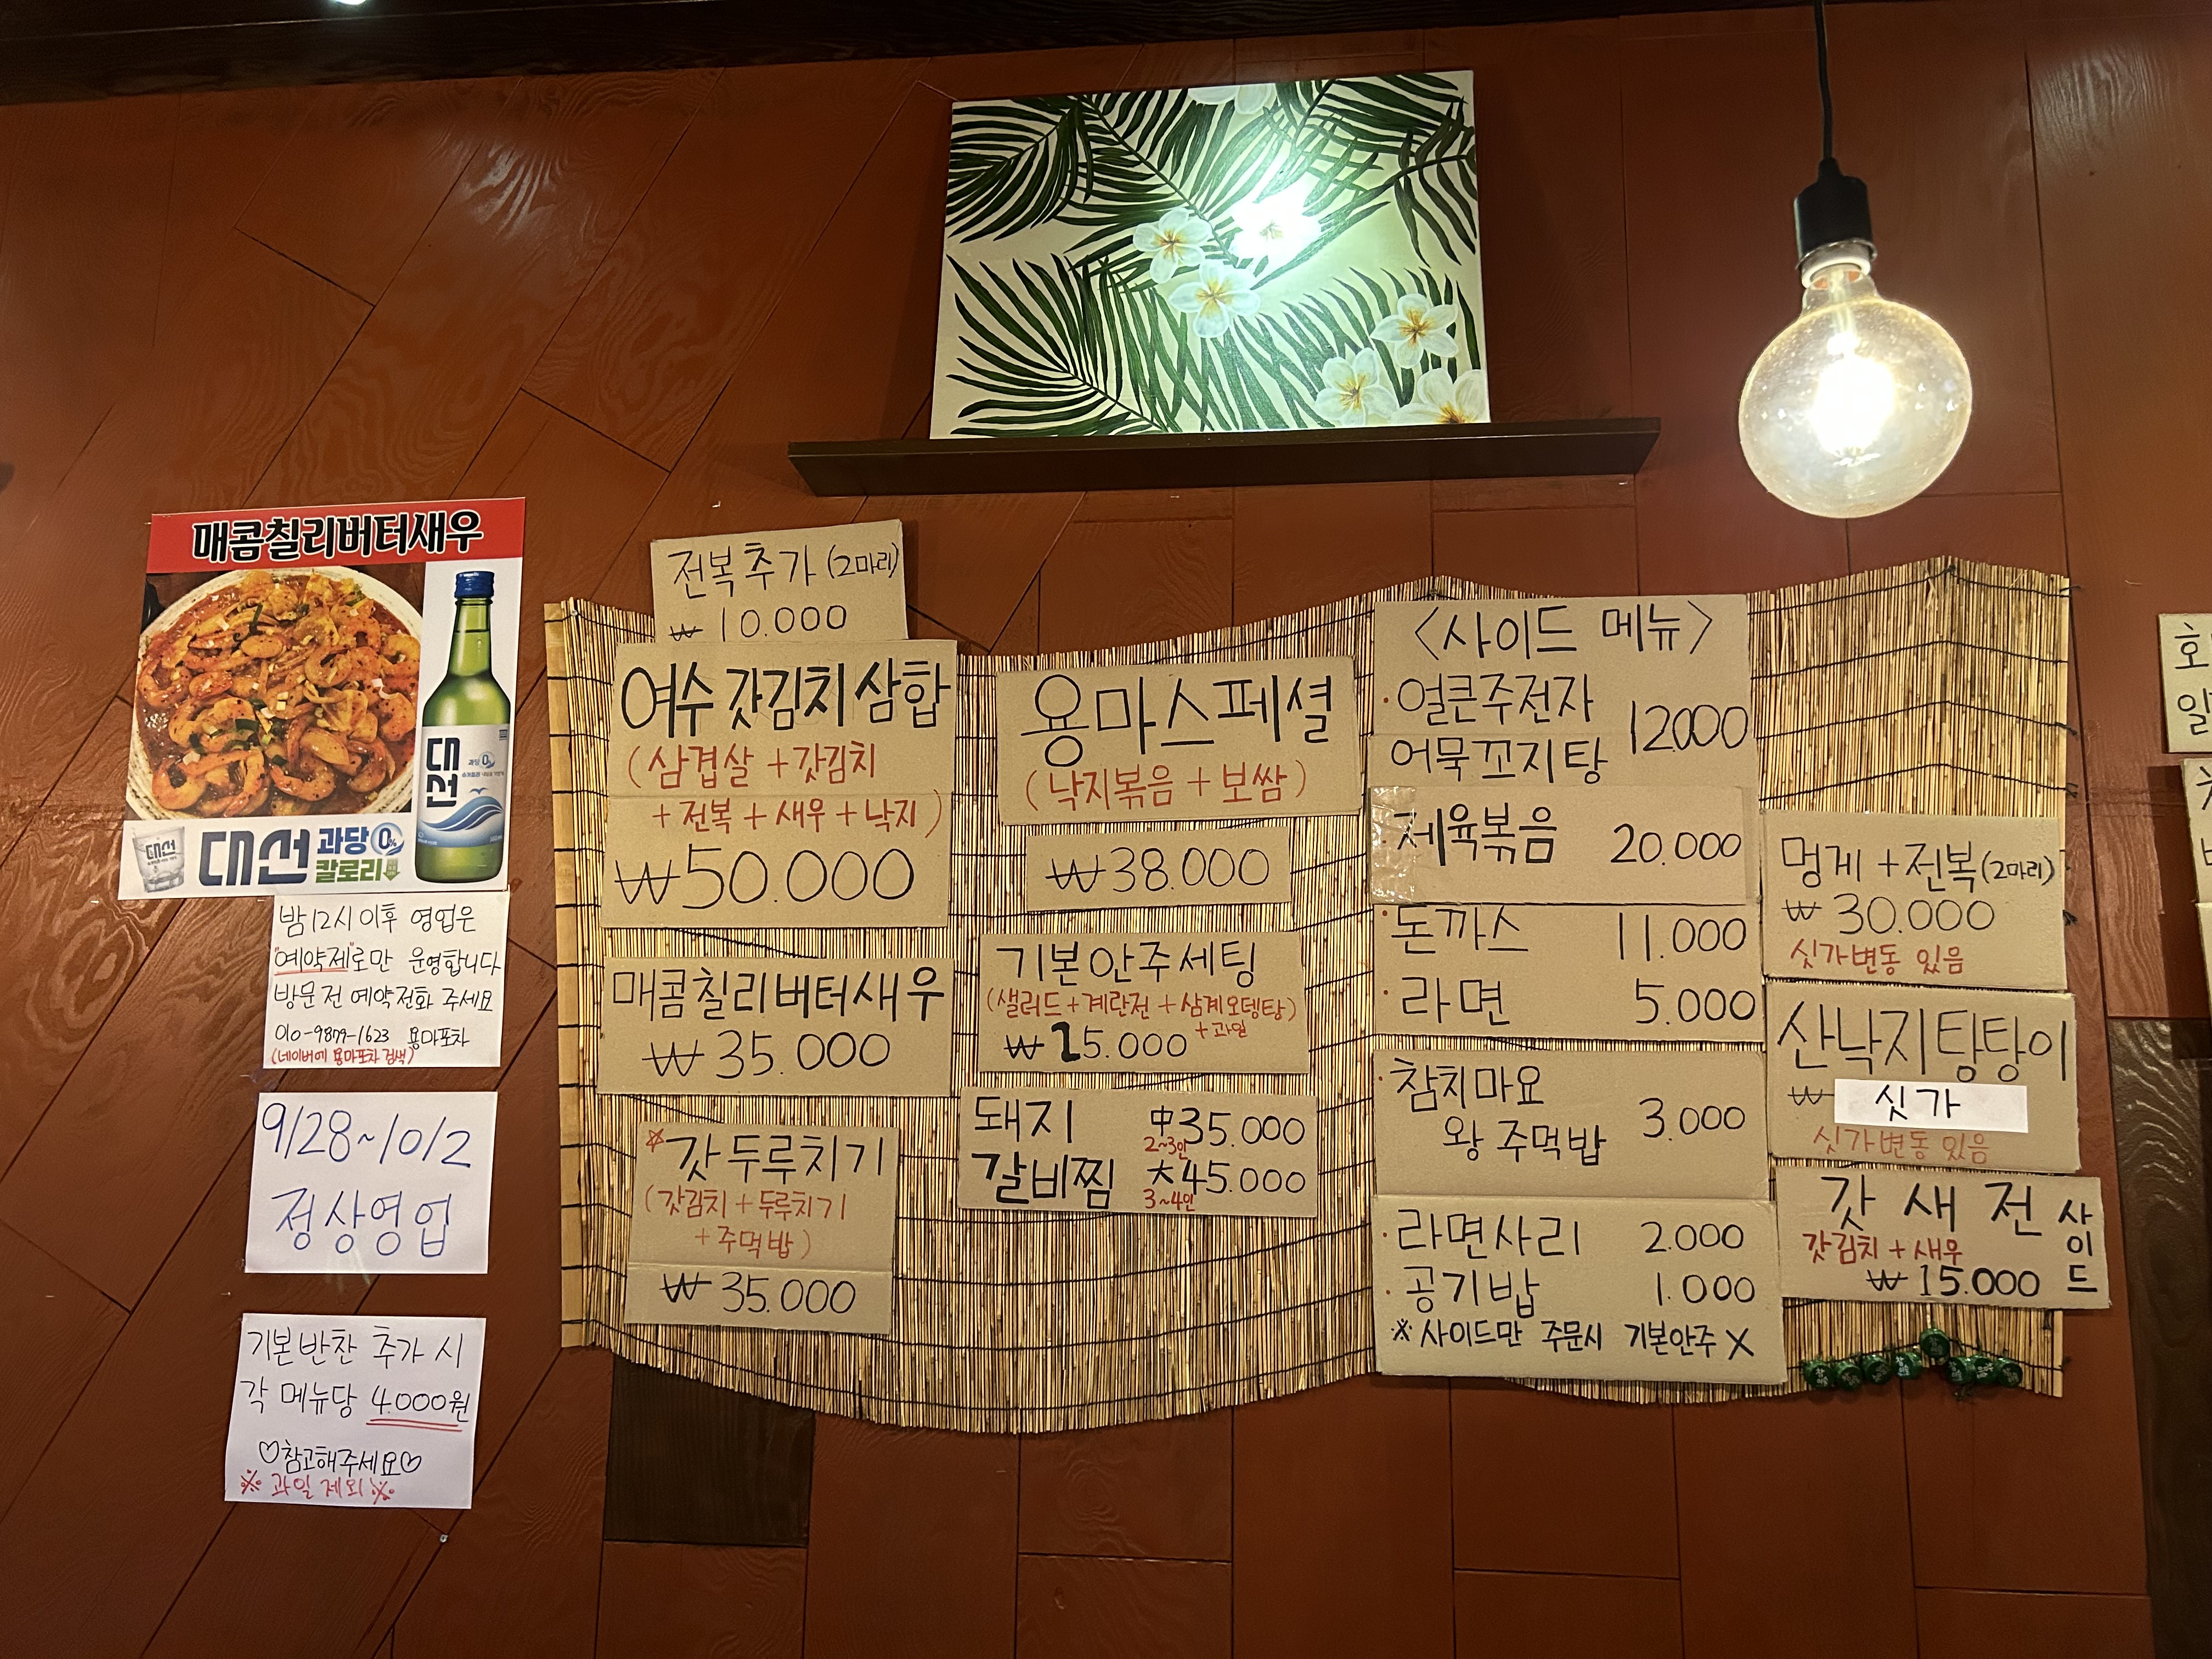 매콤칠리버터새우
대선
과당 0%
대선 과당 0%
칼로리
대선
밤 12시 이후 영업은
"예약제"로만 운영합니다
방문 전 예약전화 주세요
010-9879-1623 용마포차
(네이버에 용마포차 검색)
9/28~10/2
정상영업
기본반찬 추가 시
각 메뉴당 4.000원
♡참고해주세요♡
※ 과일 제외 ※
전복추가 (2마리)
₩ 10.000
여수 갓김치 삼합
(삼겹살 + 갓김치
+ 전복 + 새우 + 낙지)
₩50.000
매콤칠리버터새우
₩ 35.000
☆갓두루치기
(갓김치 + 두루치기
+ 주먹밥)
₩ 35.000
용마스페셜
(낙지볶음 + 보쌈)
₩38.000
기본안주세팅
(샐러드+계란전+삼계오뎅탕)
+ 과일
₩ 25.000
돼지 中35.000
2~3인
갈비찜 大45.000
3~4인
<사이드 메뉴>
·얼큰주전자
어묵꼬지탕 12000
·제육볶음 20.000
·돈까스 11.000
·라면 5.000
·참치마요
왕 주먹밥 3.000
·라면사리 2.000
·공기밥 1.000
※ 사이드만 주문시 기본안주 X
멍게 + 전복(2마리)
₩ 30.000
싯가변동 있음
산낙지탕탕이
₩ 싯가
싯가변동 있음
갓 새 전 사이드
갓김치 + 새우
₩ 15.000
호
일